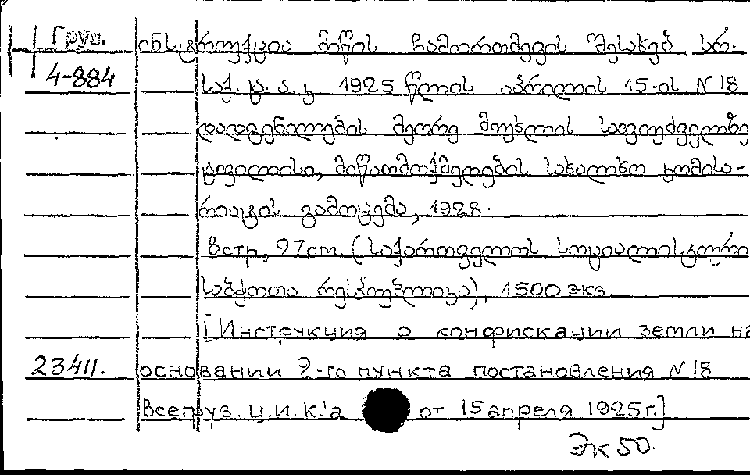 Груз. ინსტრუქცია მიწის ჩამორთმევის შესახებ სრ.
4-884 საქ. ც. ა. კ. 1925 წლის აპრილის 15-ის N 18
დადგენილების მეორე მუხლის საფუძველზე
ტფილისი, მიწათმოქმედების სახალხო კომისა-
რიატის გამოცემა, 1928.
8 стр, 27 cm. (საქართველოს სოციალისტური
საბჭოთა რესპუბლიკა), 1500 экз
[Инструкция о конфискации земли на
23411. основании 2-го пункта постановления N 18
Всегруз. Ц.И.К.'а от 15 апреля 1925 г.]
Эк 50.